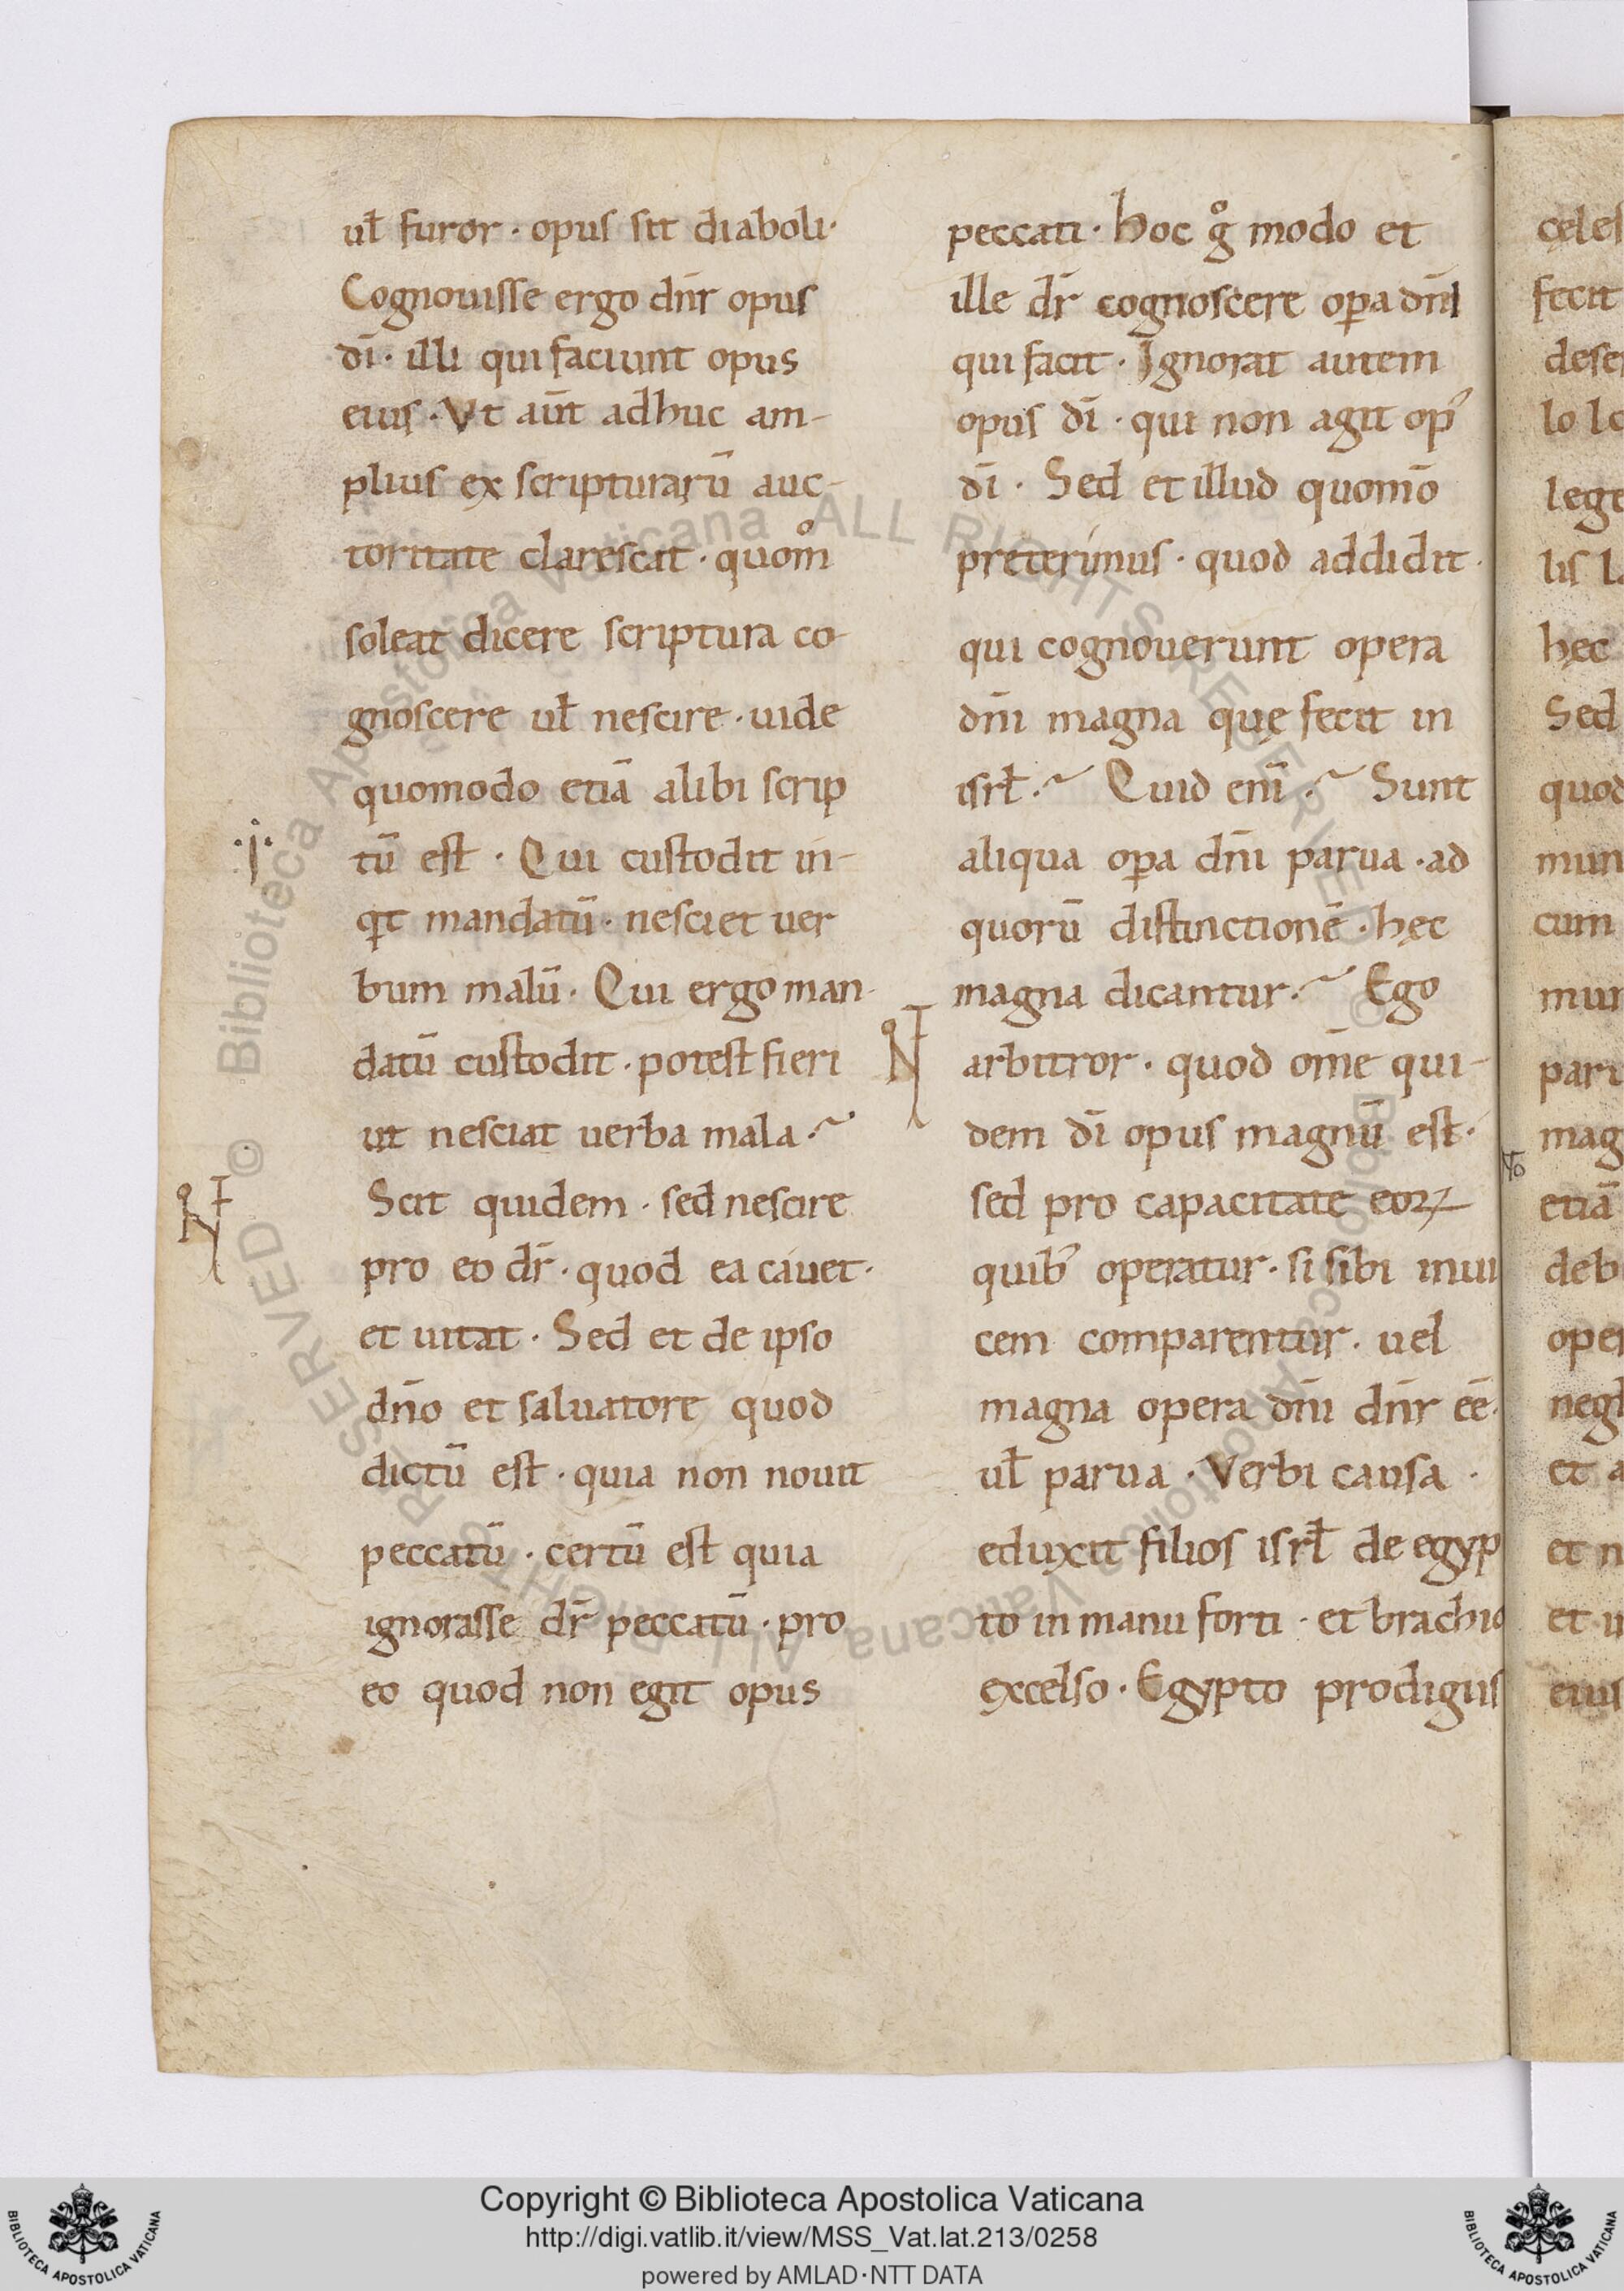 ul̄ furor · opus sit diaboli·
Cognouisse ergo dn̄r opus
dī · illi qui faciunt opus
eius · Vt aūt adhuc am-
plius ex scripturarū auc-
toritate clarescat · quom̊
soleat dicere scriptura co-
gnoscere ul̄ nescire · uide
quomodo etiā alibi scrip
tū est · Qui custodit in-
q̄t mandatū · nesciet uer
bum malū · Qui ergo man-
datū custodit · potest fieri
ut nesciat uerba mala ·~
Scit quidem · sed nescire
pro eo dr̄ · quod ea cauet·
et uitat · Sed et de ipso
dn̄o et saluatore quod
dictū est · quia non nouit
peccatū · certū est quia
ignorasse dr̄ peccatū · pro
eo quod non egit opus
peccati · hoc g̊ modo et
ille dr̄ cognoscere op̄a dn̄i
qui facit · Ignorat autem
opus dī · qui non agit op᾿
dī · Sed et illud quomō
preterimus · quod addidit ·
qui cognouerunt opera
dn̄i magna quę fecit in
isrl̄ ·~ Quid enī ·~ Sunt
aliqua op̄a dn̄i parua · ad
quorū distinctionē · hęc
magna dicantur ·~ Ego
arbitror · quod om̄e qui-
dem dī opus magnū est·
sed pro capacitate eoꝝ
quib᾿ operatur · si sibi inui
cem comparentur · uel
magna opera dn̄i dn̄r eē·
ul̄ parua · Verbi causa ·
eduxit filios isrl̄ de egyp
to in manu forti · et brachio
excelso · Egypto prodigiis
cęles
fecit
lis
hęc
Sed
quod
mun
cum
mag
etiā
deb
et
et n
eius
Copyright © Biblioteca Apostolica Vaticana
http://digi.vatlib.it/view/MSS_Vat.lat.213/0258
powered by AMLAD·NTT DATA
BIBLIOTECA APOSTOLICA VATICANA
BIBLIOTECA APOSTOLICA VATICANA